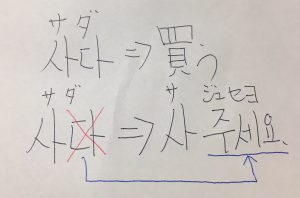 サダ
사다 ⇒ 買う
サダ サ ジュセヨ
사다 ⇒ 사 주세요.